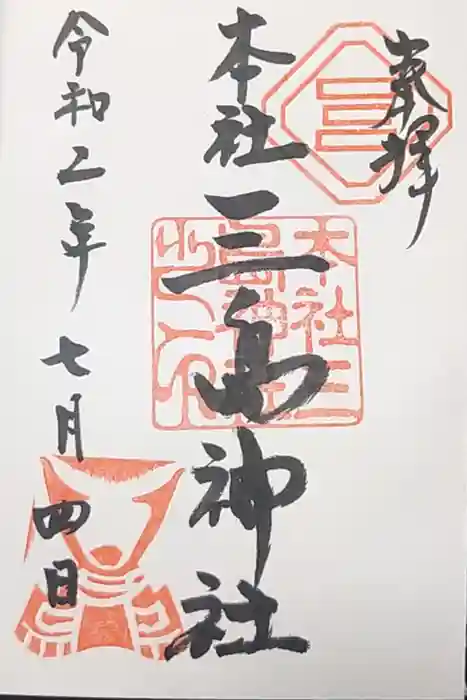 奉拝
本社三島神社
本社三
島神社
之印
令和二年七月四日